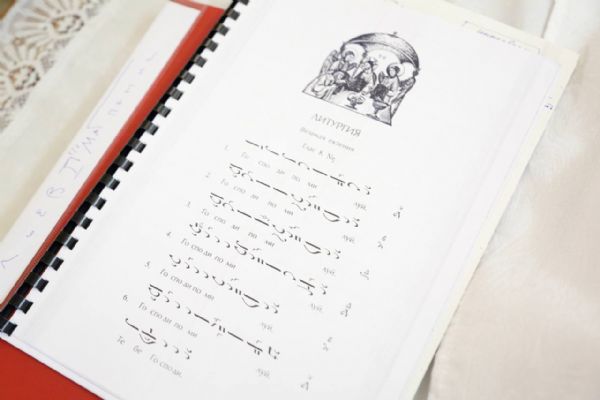 ЛИТУРГИЯ
Великая ектения
Глас 8
1. Го спо ди по ми луй.
2. Го спо ди по ми луй.
3. Го спо ди по ми луй.
4. Го спо ди по ми луй.
5. Го спо ди по ми луй.
6. Го спо ди по ми луй.
Те бе Го споди.